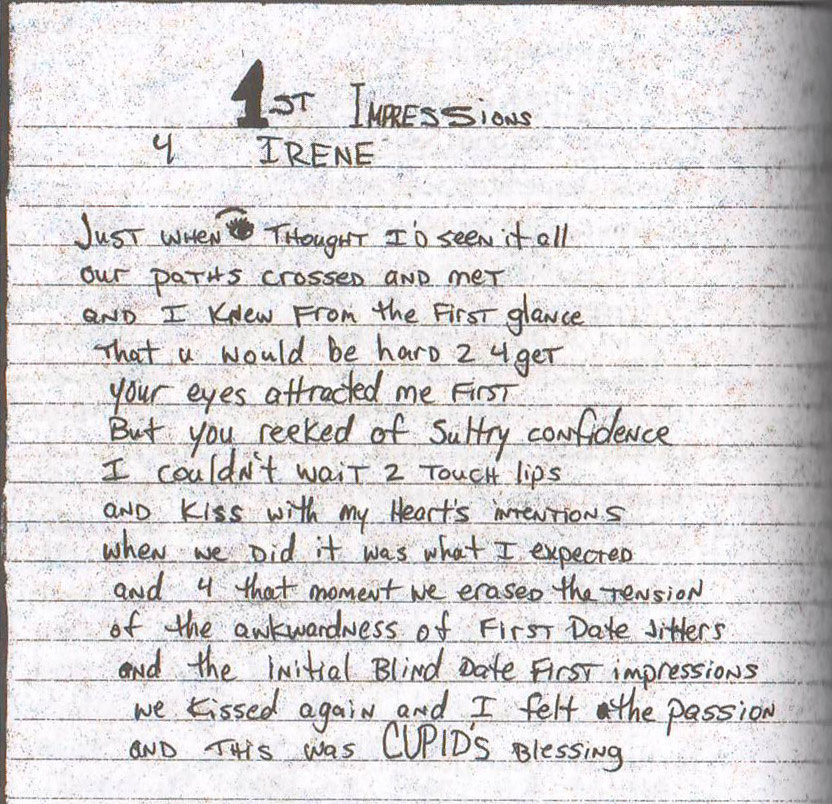 1ST IMPRESSIONS
4 IRENE
JUST WHEN 👁 THOUGHT I'D SEEN it all
our PATHS crossed AND meT
AND I KNEW From the First glance
THat u would be harD 2 4geT
your eyes attracted me FIRST
But you reeked of Sultry confidence
I couldN't waiT 2 TOUCH lips
AND Kiss with my Heart's INTENTIONS
when we Did it was what I expecTeD
and 4 that moment we eraseD the TENSION
of the awkwardness of FIRST Date Jitters
and the Initial Blind Date First impressions
we kissed again and I felt the passion
AND THis was CUPID's Blessing